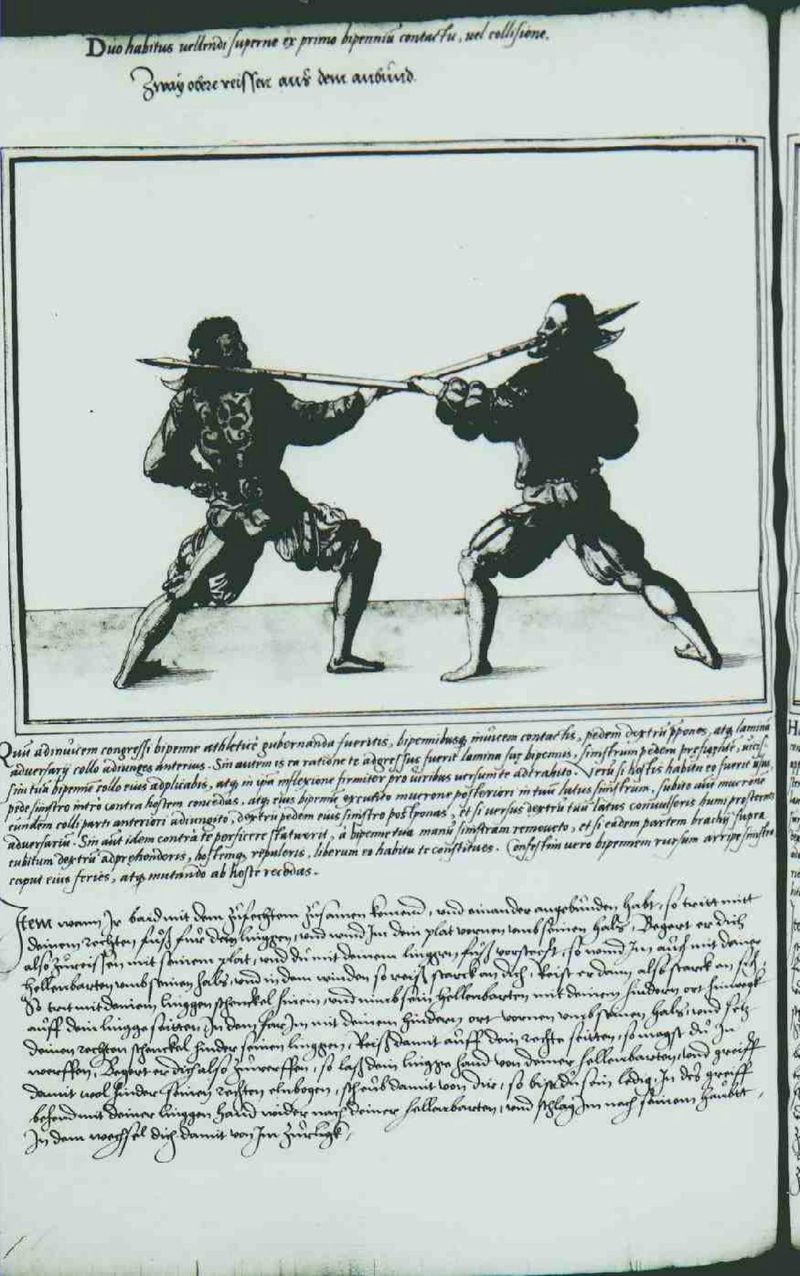 Duo habitus vellendi superne ex primo bipenniũ contactu, vel collisione.
Zwaÿ obere reissen aus dem anbund.
Quũ adinuicem congressi bipenne athleticè gubernanda fueritis, bipennibusq; inuicem contactis, pedem dextrũ ppones, atq; lamina
aduersarÿ collo adiunges anterius. Sin autem is ea ratione te adgressus fuerit lamina suę bipennis, sinistrum pedem
sim tuã bipennem collo eius adplicabis, atq; in ipsa inflexione firmiter pro viribus versum te adtrahito. Verũ si hostis habitu eo fuerit usus,
pede sinistro intrò contra hostem concedas, atq; eius bipennẽ excutito mucrone posteriori in tuũ latus sinistrum, subito aũt mucrone
eundem colli parti anteriori adiungito, dextrũ pedem eius sinistro postponas, et si versus dextrũ tuũ latus conuulseris humi prosternes
aduersariũ. Sin aũt idem contra te perficere statuerit, à bipenne tua manũ sinistram remoueto, et si eadem partem brachÿ supra
cubitum dextrũ adprehenderis, hostemq; repuleris, liberum ea habitu te constitues. Confestim vero bipennem rursum arripe sinistra
caput eius feries, atq; mutando ab hoste recedas.
Item wann Ir baid mit dem zůfechten zůsamen komend, vnd einander angebunden habt, so tritt mitt
deinem rechten fůß fur dein linggen, vnd wind Im dein plat vornen vmb seinen hals, Begert er dich
also zůreissen mit seinem plat, vnd du mit deinem linggen fůß vorsteest, so wind Im auch mit deiner
hellenbarten vmb seinen hals, vnd in dem winden so reiß starck an dich, Reist er dann also starck an sich,
So trit mit deinem linggen schenckel hinein, vnd nimb sein hellenbarten mit deinem hindern ort hinwegk
auff dein lingge seitten, In dem far Im mit deinem hindern ort vornen vmb seinen hals, vnd setz
deinen rechten schenckel hinder seinen linggen, Reiß damit auff dein rechte seitten, so magst du In
werffen, Begert er dich also zuwerffen, so laß dein lingge hand von deiner hellenbarten, vnd greiff
damit wol hinder seinen rechten elnbogen, scheub damit von dir, so bist du sein ledig, In des greiff
behend mit deiner linggen hand wider nach deiner hellenbarten, vnd schlag Im nach seinem haubt,
In dem wechsel dich damit von Im zůrugk,